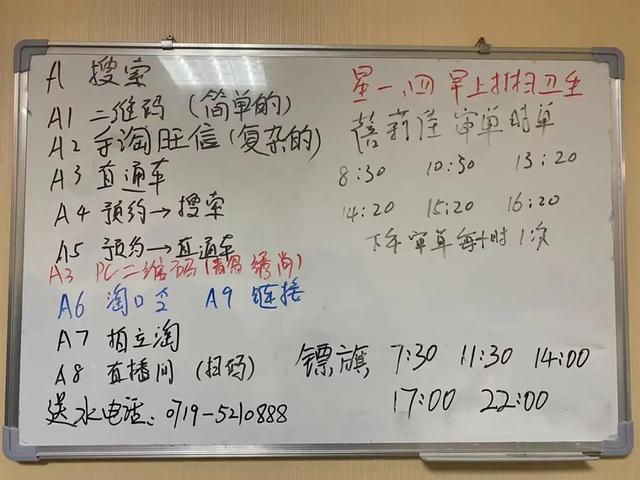 A 搜索
A1 二维码（简单的）
A2 手淘旺信（复杂的）
A3 直通车
A4 预约→搜索
A5 预约→直通车
A3 PC二维码（
A6 淘口令 A9 链接
A7 拍立淘
A8 直播间（扫码）
送水电话：0719-5210888
星一、四 早上打扫卫生
蓓莉佳 审单时单
8:30 10:30 13:20
14:20 15:20 16:20
下午审单每小时1次
镖旗 7:30 11:30 14:00
17:00 22:00